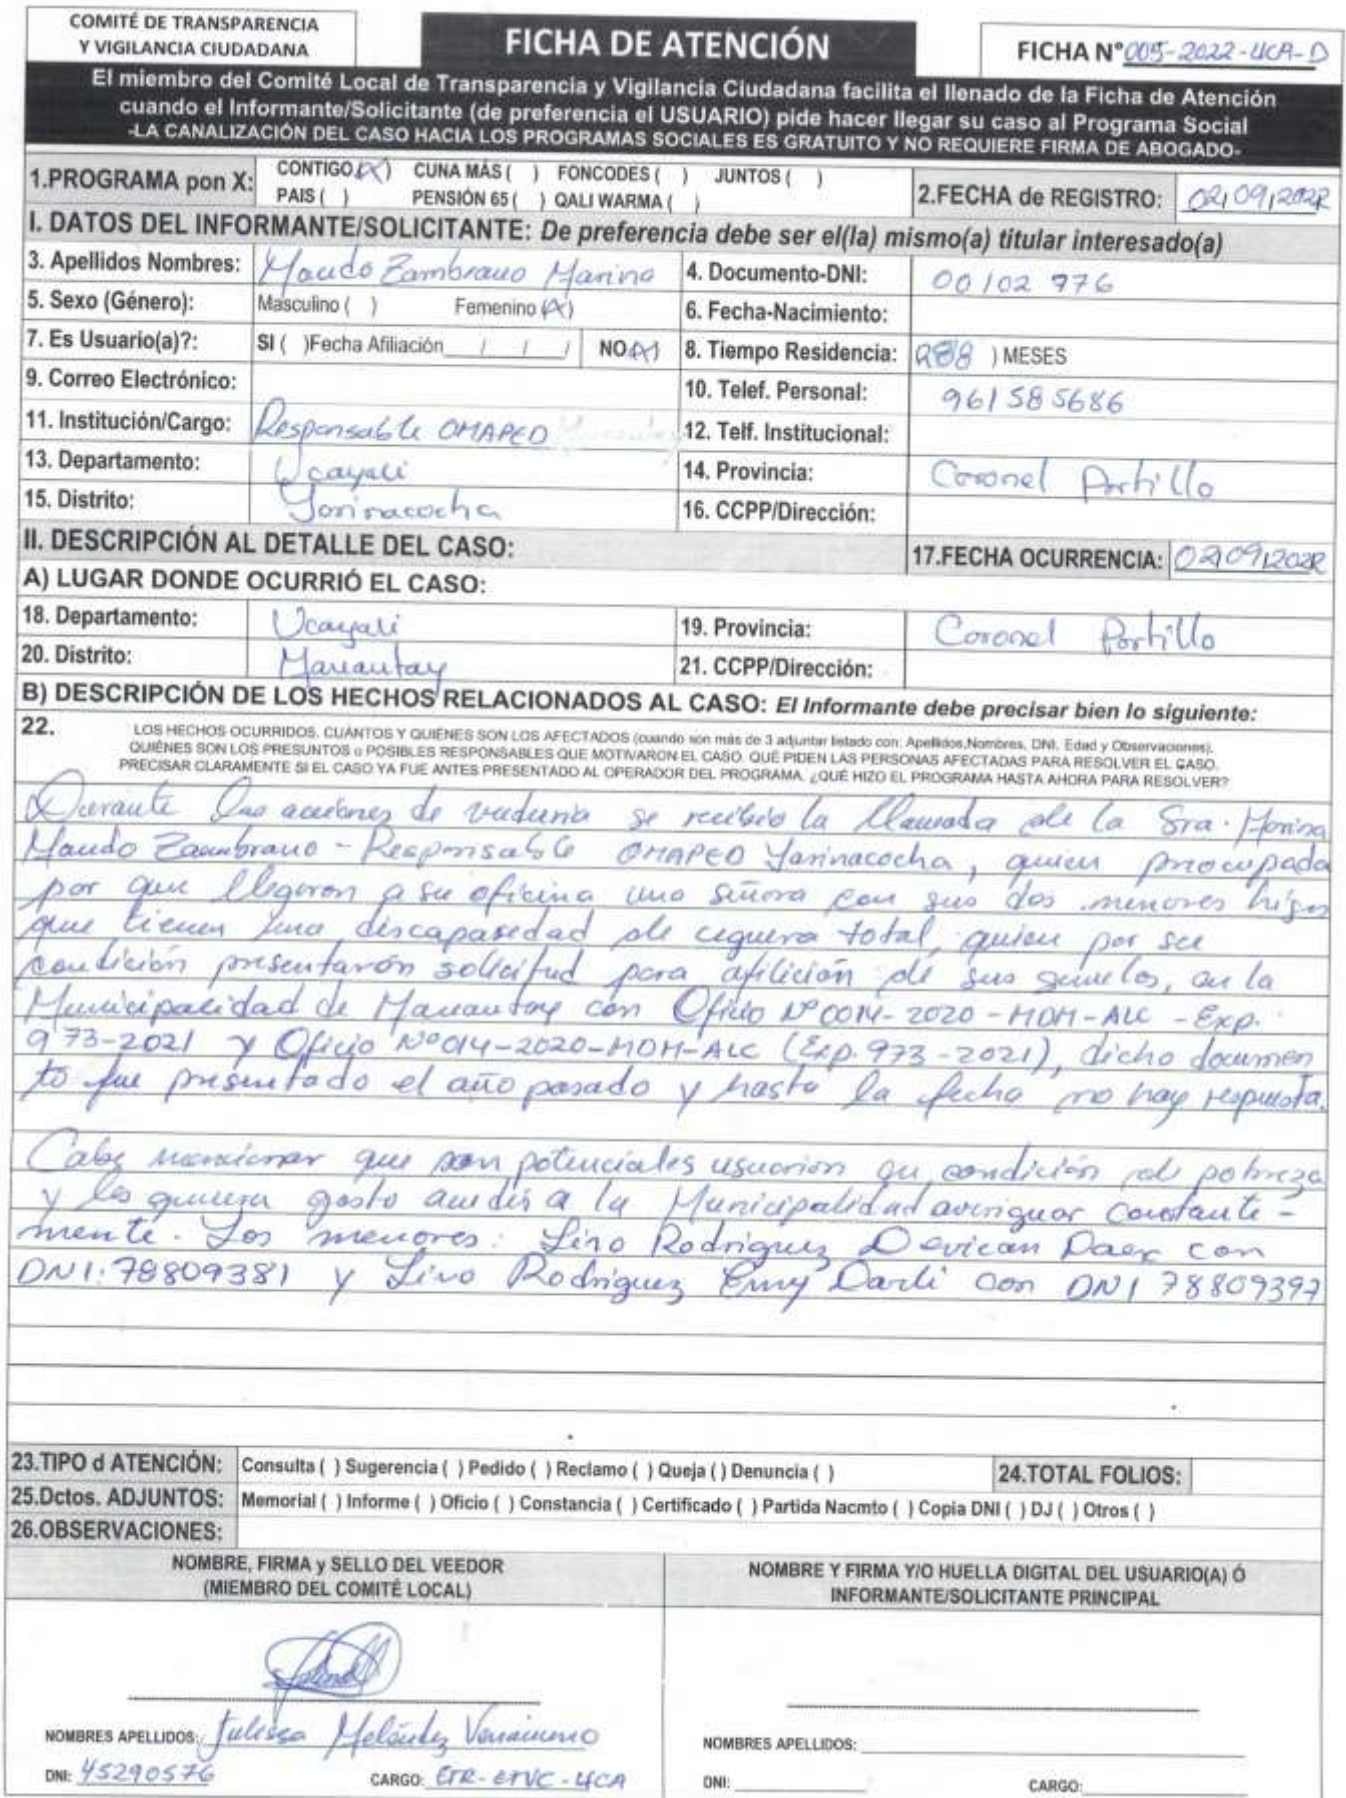 COMITÉ DE TRANSPARENCIA
Y VIGILANCIA CIUDADANA
FICHA DE ATENCIÓN
FICHA N° 005-2022-UCA-D
El miembro del Comité Local de Transparencia y Vigilancia Ciudadana facilita el llenado de la Ficha de Atención
cuando el Informante/Solicitante (de preferencia el USUARIO) pide hacer llegar su caso al Programa Social
-LA CANALIZACIÓN DEL CASO HACIA LOS PROGRAMAS SOCIALES ES GRATUITO Y NO REQUIERE FIRMA DE ABOGADO-
1.PROGRAMA pon X: CONTIGO (X) CUNA MÁS ( ) FONCODES ( ) JUNTOS ( )
PAIS ( ) PENSIÓN 65 ( ) QALI WARMA ( )
2.FECHA de REGISTRO: 02/09/2022
I. DATOS DEL INFORMANTE/SOLICITANTE: De preferencia debe ser el(la) mismo(a) titular interesado(a)
3. Apellidos Nombres: Maudo Zambrano Marina 4. Documento-DNI: 00102776
5. Sexo (Género): Masculino ( ) Femenino (X) 6. Fecha-Nacimiento:
7. Es Usuario(a)?: SI ( )Fecha Afiliación / / / NO (X) 8. Tiempo Residencia: 288 ) MESES
9. Correo Electrónico: 10. Telef. Personal: 961585686
11. Institución/Cargo: Responsable OMAPED 12. Telf. Institucional:
13. Departamento: Ucayali 14. Provincia: Coronel Portillo
15. Distrito: Yarinacocha 16. CCPP/Dirección:
II. DESCRIPCIÓN AL DETALLE DEL CASO: 17.FECHA OCURRENCIA: 02/09/2022
A) LUGAR DONDE OCURRIÓ EL CASO:
18. Departamento: Ucayali 19. Provincia: Coronel Portillo
20. Distrito: Manantay 21. CCPP/Dirección:
B) DESCRIPCIÓN DE LOS HECHOS RELACIONADOS AL CASO: El Informante debe precisar bien lo siguiente:
22. LOS HECHOS OCURRIDOS, CUÁNTOS Y QUIÉNES SON LOS AFECTADOS (cuando son más de 3 adjuntar listado con: Apellidos,Nombres, DNI, Edad y Observaciones),
QUIÉNES SON LOS PRESUNTOS o POSIBLES RESPONSABLES QUE MOTIVARON EL CASO. QUÉ PIDEN LAS PERSONAS AFECTADAS PARA RESOLVER EL CASO.
PRECISAR CLARAMENTE SI EL CASO YA FUE ANTES PRESENTADO AL OPERADOR DEL PROGRAMA. ¿QUÉ HIZO EL PROGRAMA HASTA AHORA PARA RESOLVER?
Durante las acciones de veeduria se recibio la llamada de la Sra. Marina
Maudo Zambrano - Responsable OMAPED Yarinacocha, quien preocupada
por que llegaron a su oficina una señora con sus dos menores hijos
que tienen una discapacidad de ceguera total, quien por su
condición presentarón solicitud para afilición de sus gemelos, en la
Municipalidad de Manantay con Oficio N° 0014-2020-MDM-ALC - Exp.
973-2021 y Oficio N° 014-2020-MDM-ALC (Exp. 973-2021), dicho documen
to fue presentado el año pasado y hasta la fecha no hay respuesta.
Cabe mencionar que son potenciales usuarios en condición de pobreza
y les genera gasto acudir a la Municipalidad averiguar constante-
mente. Los menores: Lino Rodriguez Devican Daer con
DNI: 78809381 y Lino Rodriguez Emy Darli con DNI 78809397
23.TIPO d ATENCIÓN: Consulta ( ) Sugerencia ( ) Pedido ( ) Reclamo ( ) Queja ( ) Denuncia ( ) 24.TOTAL FOLIOS:
25.Dctos. ADJUNTOS: Memorial ( ) Informe ( ) Oficio ( ) Constancia ( ) Certificado ( ) Partida Nacmto ( ) Copia DNI ( ) DJ ( ) Otros ( )
26.OBSERVACIONES:
NOMBRE, FIRMA y SELLO DEL VEEDOR
(MIEMBRO DEL COMITÉ LOCAL)
NOMBRE Y FIRMA Y/O HUELLA DIGITAL DEL USUARIO(A) Ó
INFORMANTE/SOLICITANTE PRINCIPAL
NOMBRES APELLIDOS: Julissa Meléndez NOMBRES APELLIDOS:
DNI: 45290576 CARGO: ETR-CTVC-UCA DNI: CARGO: